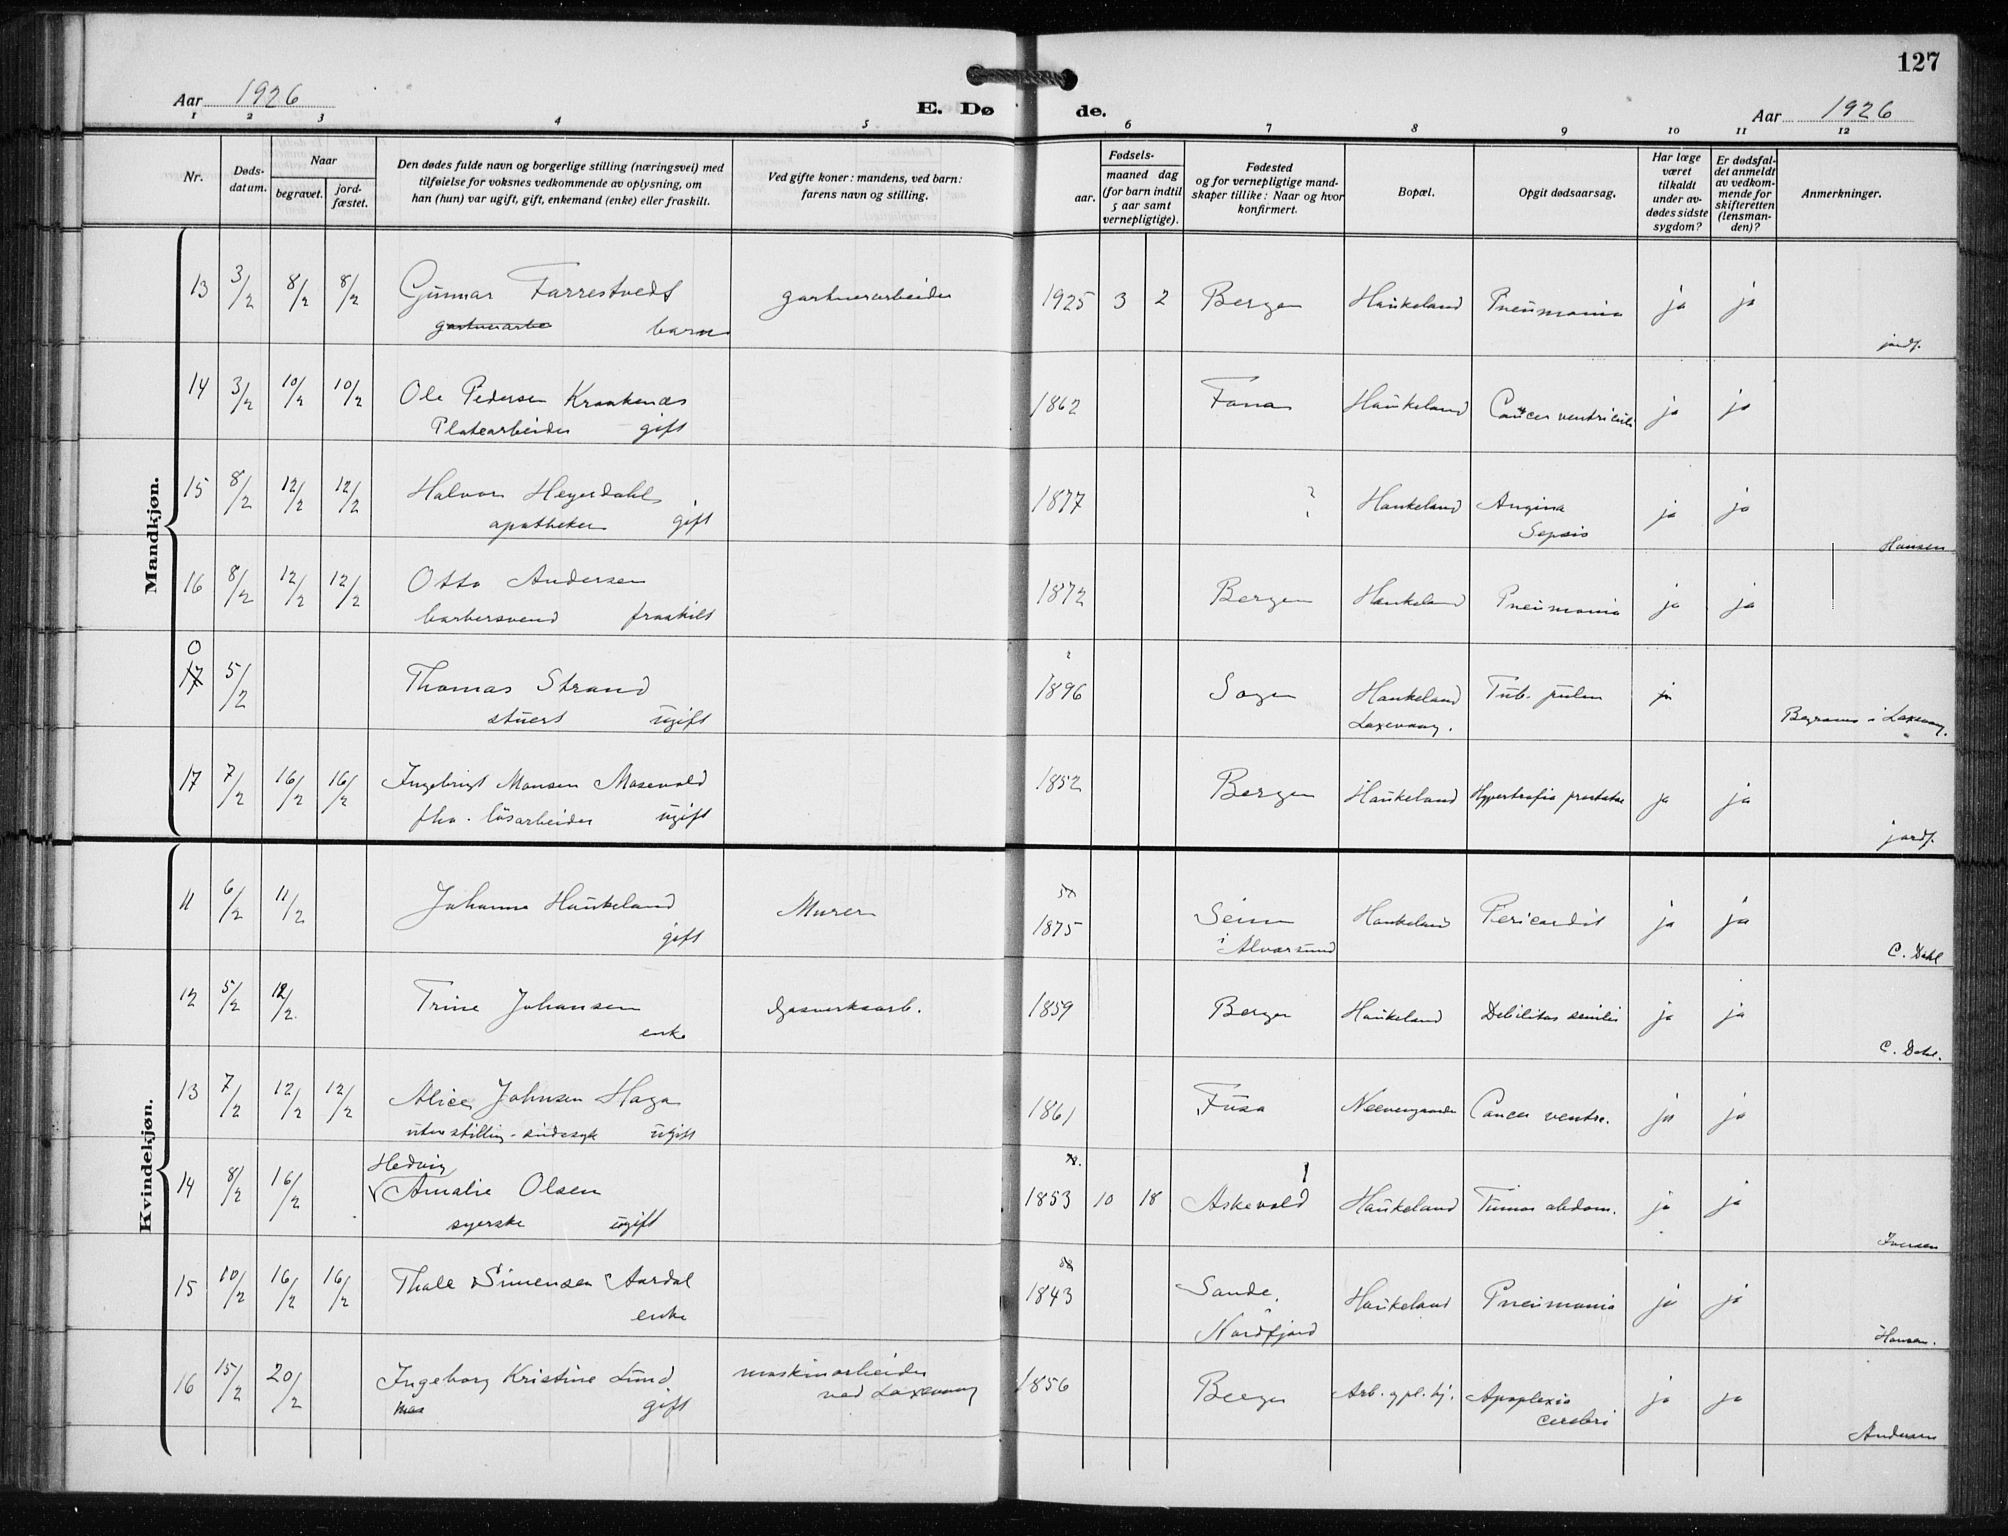 127
Aar 1926
E. Dø de.
Aar 1926
1 2 3 4 5 6 7 8 9 10 11 12
Nr.
Døds-
datum.
Naar
begravet.
jord-
fæstet.
Den dødes fulde navn og borgerlige stilling (næringsvei) med
tilføielse for voksnes vedkommende av oplysning, om
han (hun) var ugift, gift, enkemand (enke) eller fraskilt.
Ved gifte koner: mandens, ved barn:
farens navn og stilling.
Fødsels-
aar.
maaned dag
(for barn indtil
5 aar samt
vernepligtige).
Fødested
og for vernepligtige mand-
skaper tillike: Naar og hvor
konfirmert.
Bopæl.
Opgit dødsaarsag.
Har læge
været
tilkaldt
under av-
dødes sidste
sygdom?
Er dødsfal-
det anmeldt
av vedkom-
mende for
skifteretten
(lensman-
den)?
Anmerkninger.
Mandkjøn.
13 3/2 8/2 8/2 Gunnar Farrestvedt gartnerarbeider 1925 3 2 Bergen Haukeland Pneumonia ja ja
gartnerarbe barn jordf.
14 3/2 10/2 10/2 Ole Pedersen Kraakenæs 1862 Fana Haukeland Cancer ventriculi ja ja
Platearbeider gift
15 8/2 12/2 12/2 Halvor Heyerdahl 1877 ? Haukeland Angina ja ja
apotheker gift Sepsis Hansen
16 8/2 12/2 12/2 Otto Andersen 1872 Bergen Haukeland Pneumonia ja ja
barbersvend fraskilt
0
17 5/2 Thomas Strand 1896 Sogn Haukeland Tub. pulm ja
stuert ugift Laxevaag. Begraves i Laxevaag.
17 7/2 16/2 16/2 Ingebrigt Monsen Masevold 1852 Bergen Haukeland Hypertrofia prostatae ja ja
fhv. løsarbeider ugift jordf.
Kvindekjøn.
11 6/2 11/2 Johanna Haukeland Murer 1875 Seim Haukeland Pericardit ja ja
gift i Alversund C. Dahl
12 5/2 12/2 Trine Johansen Gasverksarb. 1859 Bergen Haukeland Debilitas senilis ja ja
enke C. Dahl.
13 7/2 12/2 12/2 Alice Johnsen Haga 1861 Fusa Neevengaarden Cancer ventre. ja ja
uten stilling - sindssyk ugift
Hedvig
14 8/2 16/2 Amalie Olsen 1853 10 18 Askevold Haukeland Tumor abdom. ja ja
syerske ugift Iversen
15 10/2 16/2 16/2 Thale Simensen Aardal 1843 Sande, Haukeland Pneumonia ja ja
enke Nordfjord Hansen.
16 15/2 20/2 Ingeborg Kristine Lund maskinarbeider 1856 Bergen Arb. gpl. hj. Apoplexia ja ja
gift ved Laxevaag cerebri Andersen